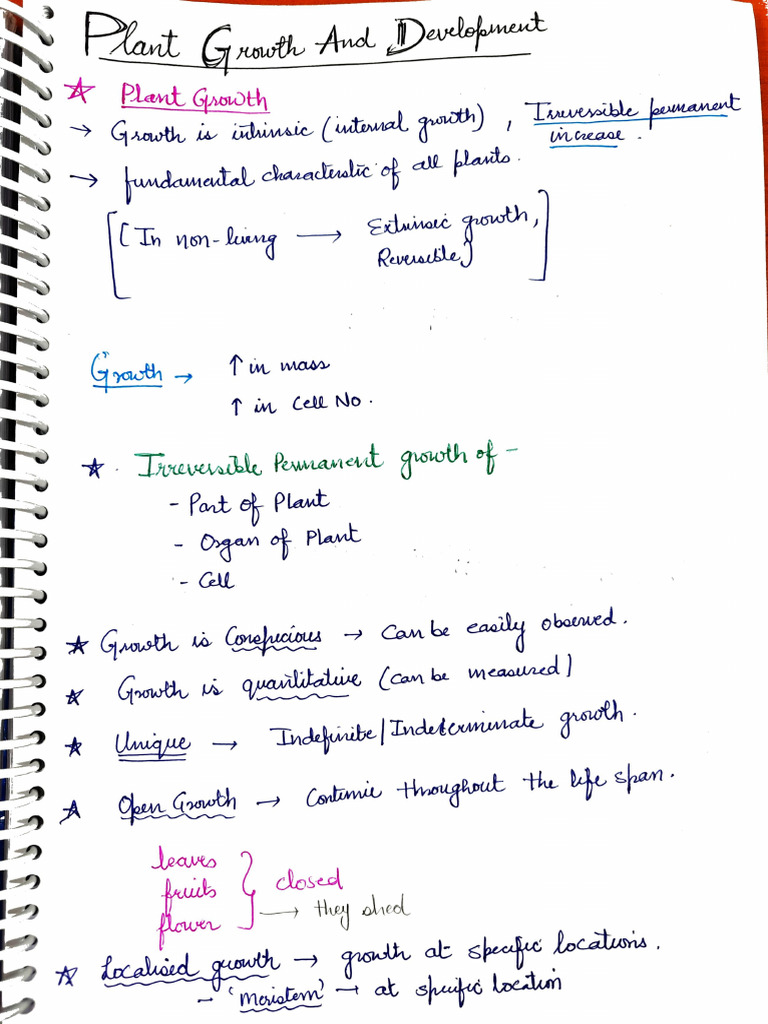 Plant Growth And Development
☆ Plant Growth
→ Growth is intrinsic (internal growth), Irreversible permanent increase.
→ fundamental characteristic of all plants.
[(In non-living → Extrinsic growth, Reversible)]
Growth → ↑ in mass
↑ in Cell No.
☆ Irreversible Permanent growth of -
- Part of Plant
- Organ of Plant
- Cell
☆ Growth is Conspicious → Can be easily observed.
☆ Growth is quantitative (can be measured)
☆ Unique → Indefinite/Indeterminate growth.
☆ Open Growth → Continue throughout the life span.
leaves
fruits } closed
flower → they shed
☆ Localised growth → growth at specific locations.
- 'Meristem' → at specific location